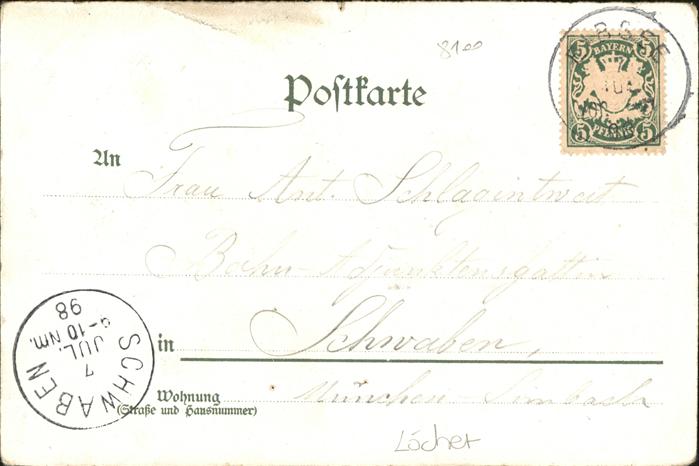 8100
5 BAYERN 5
5 PFENNIG 5
Postkarte
An
Frau Ant. Schlagintweit
Bahn-Adjunktensgattin
in Schwaben,
Wohnung München-Simbach
(Straße und Hausnummer)
SCHWABEN
7
JUL.
9-10 NM.
98
Löcher